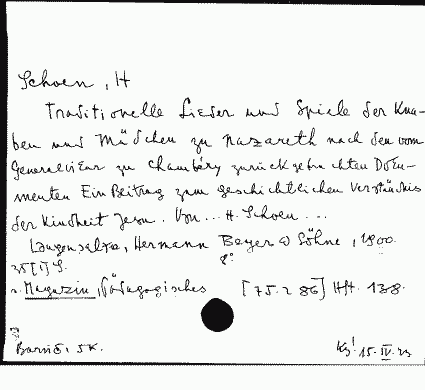 Schoen, H
Traditionelle Lieder und Spiele der Kna-
ben und Mädchen zu Nazareth nach den vom
Generalvikar zu Chambéry zurückgebrachten Doku-
menten Ein Beitrag zum geschichtlichen Verständnis
der Kindheit Jesu. Von ... H. Schoen ...
Langensalza, Hermann Beyer & Söhne, 1900.
35 [1] S. 8°
Magazin, Pädagogisches [75.2 86] Hft. 138.
15.IV.23